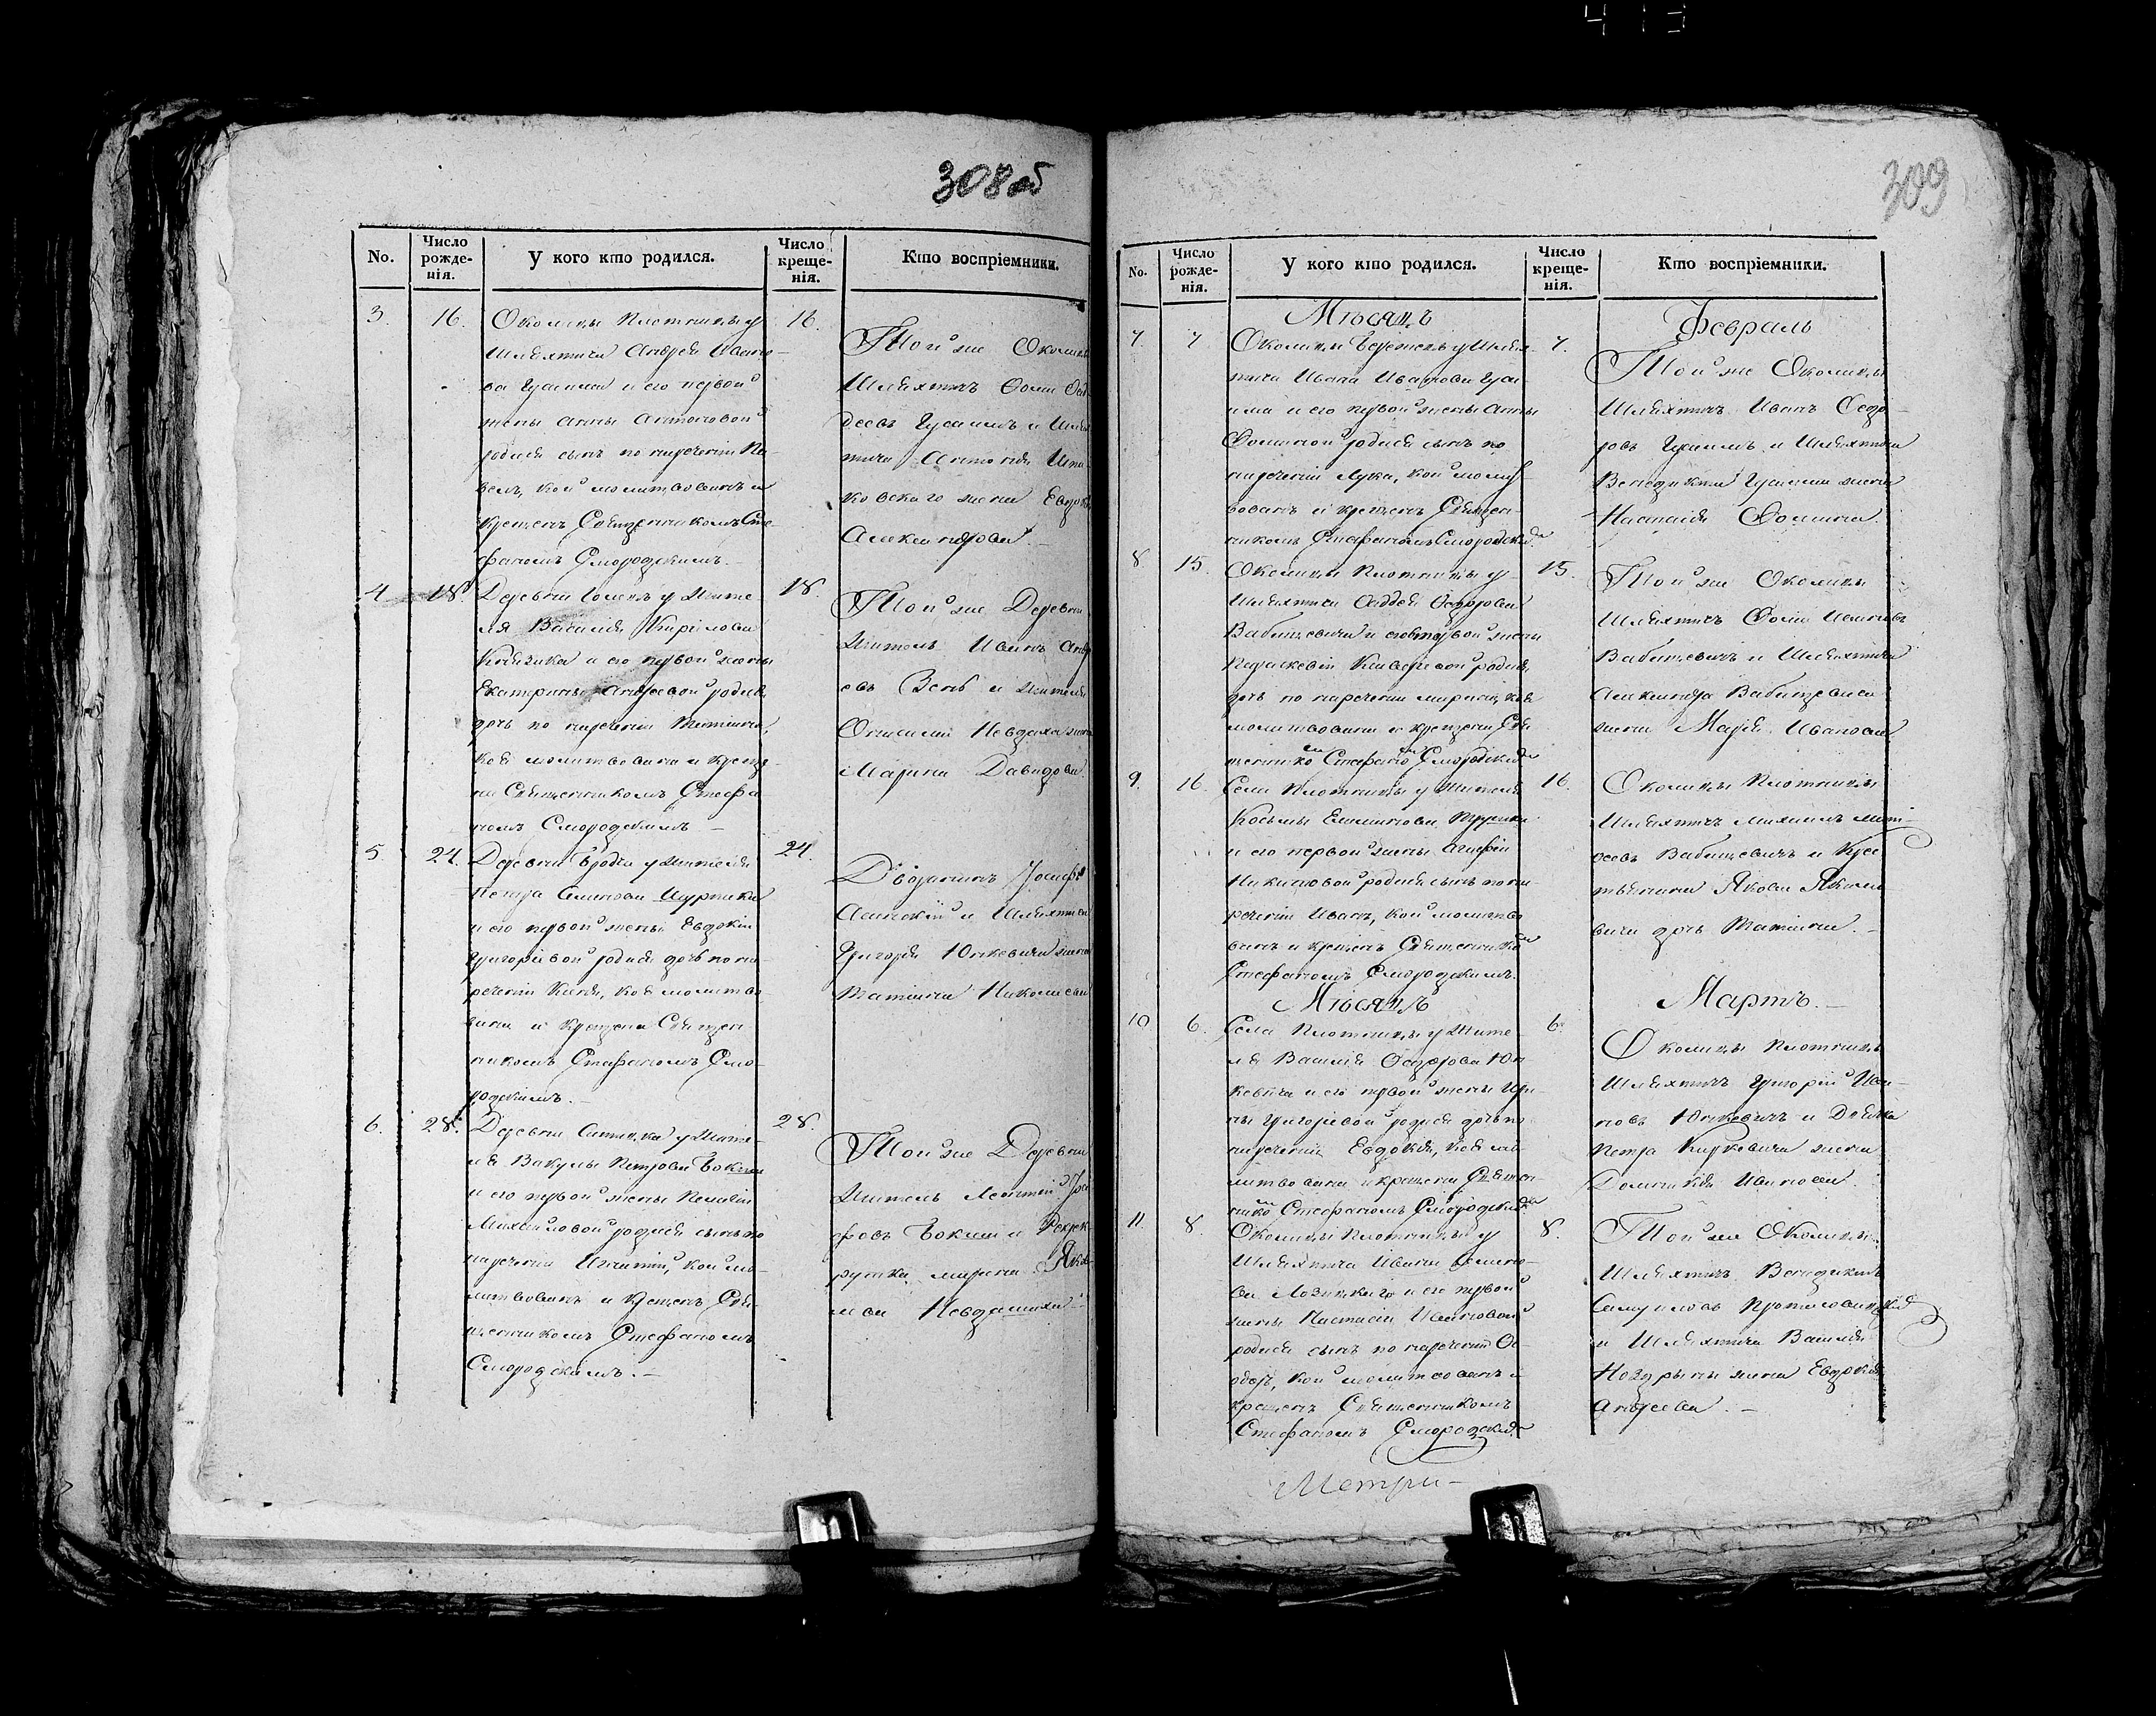 413
308 об
No.
Число рожде-нія.
У кого кто родился.
Число креще-нія.
Кто воспріемники.
3.
16.
Околицы Плотницы у
Шляхтича Андрея Ивано-
ва Гусаима и его первой
жены Анны Антоновой
родился сынъ по нареченіи Па-
велъ, кой молитвованъ и
крещенъ Священникомъ Сте-
фаномъ Смородскимъ. –
16.
Той же Околицы
Шляхтичъ Фома
деевъ Гусаимъ и
тича Антонія
ковскаго жена
Александрова. –
4
18.
Деревни у Жите-
ля Василія Кирилова
и его первой жены
Екатерины Андреевой родилась
дочь по нареченіи Татіанна,
коя молитвована и креще-
на Священникомъ Стефа-
номъ Смородскимъ –
18.
Той же Деревни
Житель Иванъ
евъ и жителя
жена
Марина Давидова
5
24.
Деревни Бродча у Жителя
Петра Шурпика
и его первой жены Евдокіи
Григоріевой родися дочь по на-
реченіи Ксенія, коя молитво-
вана и крещена Священ
никомъ Стефаномъ Смо-
родскимъ. –
24.
Дворянинъ Іосифъ
и Шляхтича
Григорія Юнкевича жена
Татіанна Николаева
6.
28.
Деревни Ситицка у Жите-
ля Вакулы Петрова Бокши
и его первой жены Пелагіи
Михайловой родися сынъ по
нареченіи Игнатій, кой мо-
литвованъ и крещенъ Свя-
щенникомъ Стефаномъ
Смородскимъ. –
28.
Той же Деревни
Житель Леонтій
фовъ Бокша и Рекрк-
рутка Марина Яков-
лева
309
No.
Число рожде-нія.
У кого кто родился.
Число креще-нія.
Кто воспріемники.
Мѣсяцъ
Февраль
7
7
Околицы Бережецъ у Шлях-
тича Ивана Иванова Гуса-
има и его первой жены Анны
Фоминой родися сынъ по
нареченіи Лука, кой молит-
вованъ и крещенъ Священ-
никомъ Стефаномъ Смородскимъ
7.
Той же Околицы
Шляхтичъ Иванъ Федо-
ровъ Гусаимъ и Шляхтича
Венедикта Гусаима жена
Настасія Фомина.
8
15.
Околицы Плотницы у
Шляхтича Фаддея Федорова
Вабищевича и его первой жены
Параскевіи родися
дочь по нареченіи Марина, коя
молитвована и крещена Свя
щеннико Стефано Смородски
15.
Той же Околицы
Шляхтичъ Фома Ивановъ
Вабищевичъ и Шляхтича
Александра Вабищевича
жена Марія Иванова.
9.
16.
Села Плотницы у Жителя
Косьмы
и его первой жены Агафіи
родися сынъ по на-
реченіи Иванъ, кой молитво
ванъ и крещенъ Священнико
Стефаномъ Смородскимъ.
16.
Околицы Плотницы
Шляхтичъ Михаилъ Мат-
феевъ Вабищевичъ и Крес
тьянина Якова Якимо-
вича дочь Татіанна. –
Мѣсяцъ
Мартъ. –
10
6.
Села Плотницы у Жите-
ля Василія Федорова Юн-
кевича и его первой жены Ири-
ны Григоріевой родися дочь по
нареченіи Евдокія, коя мо-
литвована и крещена Священ-
нико Стефаномъ Смородским
6.
Околицы Плотницы
Шляхтичъ Григорій Ива-
новъ Юнкевичъ и Дьячка
Петра жена
Доминикія Иванова.
11.
8.
Околицы Плотницы у
Шляхтича Ивана Семено-
ва Лозицкаго и его первой
жены Настасіи Ивановой
родися сынъ по нареченіи Фе-
одоръ, кой молитвованъ и
крещенъ Священникомъ
Стефаномъ Смородским
8.
Той же Околицы
Шляхтичъ Венедиктъ
Самуиловъ Протасовицкій
и Шляхтича Василія
Ноздрына жена Евдокія
Андреева. –
Метри–